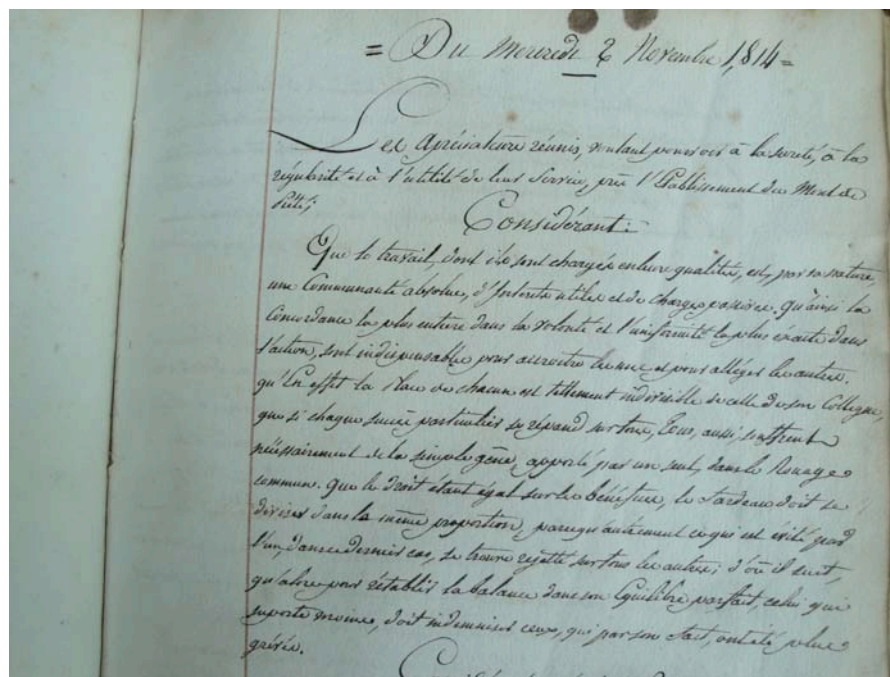 = Du Mercredi 2 Novembre 1,814 =
Les Apréciateurs réunis, voulant pourvoir à la sureté, à la
régularité et à l'utilité de leur Service, près l'Etablissement du Mont de
Piété;
Considérant:
Que le travail, dont ils sont chargés en leurs qualités, est, par sa nature,
une Communauté absolue, d'interets utiles et de charges passives. Qu'ainsi la
Concordance la plus entiere dans la volonté et l'uniformité la plus éxacte dans
l'action, sont indispensables pour accroitre les uns et pour alléger les autres.
qu'En effet la Place de chacun est tellement indivisible de celle de son Collegue,
que si chaque succès particulier se répand sur tous, Tous, aussi, souffrent
nécéssairement de la simple gêne, apporté, par un seul, dans le Rouage
commun. Que le Droit étant égal sur les bénéfices, le fardeau doit se
diviser dans la même proportion, parcequ'autrement ce qui est évité par
l'un, dans ce dernier cas, se trouve rejetté sur tous les autres; d'où il suit,
qu'alors pour rétablir la balance dans son Equilibre parfait, celui qui
suporte moins, doit indemniser ceux, qui par son fait, ont été plus
grévés.